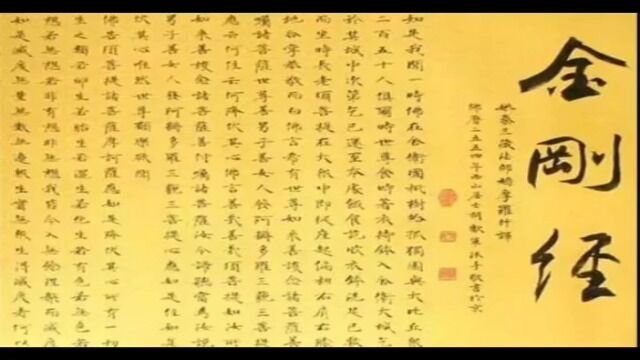 金剛經
姚秦三藏法師鳩摩羅什譯
佛曆二五五四年山居士胡歡軍沐手敬書於京
如是我聞一時佛在舍衛國祇樹給孤獨園與大比丘眾
二百五十人俱爾時世尊食時著衣持鉢入舍衛大城乞
於其城中次第乞已還至本處飯食訖收衣鉢洗足已敷
而坐時長老須菩提在大眾中即從座起偏袒右肩右膝
地合掌恭敬而白佛言希有世尊如來善護念諸菩薩善
囑諸菩薩世尊善男子善女人發阿耨多羅三藐三菩
應云何住云何降伏其心佛言善哉善哉須菩提如汝所
如來善護念諸菩薩善付囑諸菩薩汝今諦聽當為汝說
男子善女人發阿耨多羅三藐三菩提心應如是住如
伏其心唯然世尊願樂欲聞
佛告須菩提諸菩薩摩訶薩應如是降伏其心所有一切
生之類若卵生若胎生若濕生若化生若有色若無色若
想若無想若非有想非無想我皆令入無餘涅槃而滅度
如是滅度無量無數無邊眾生實無眾生得滅度者何以